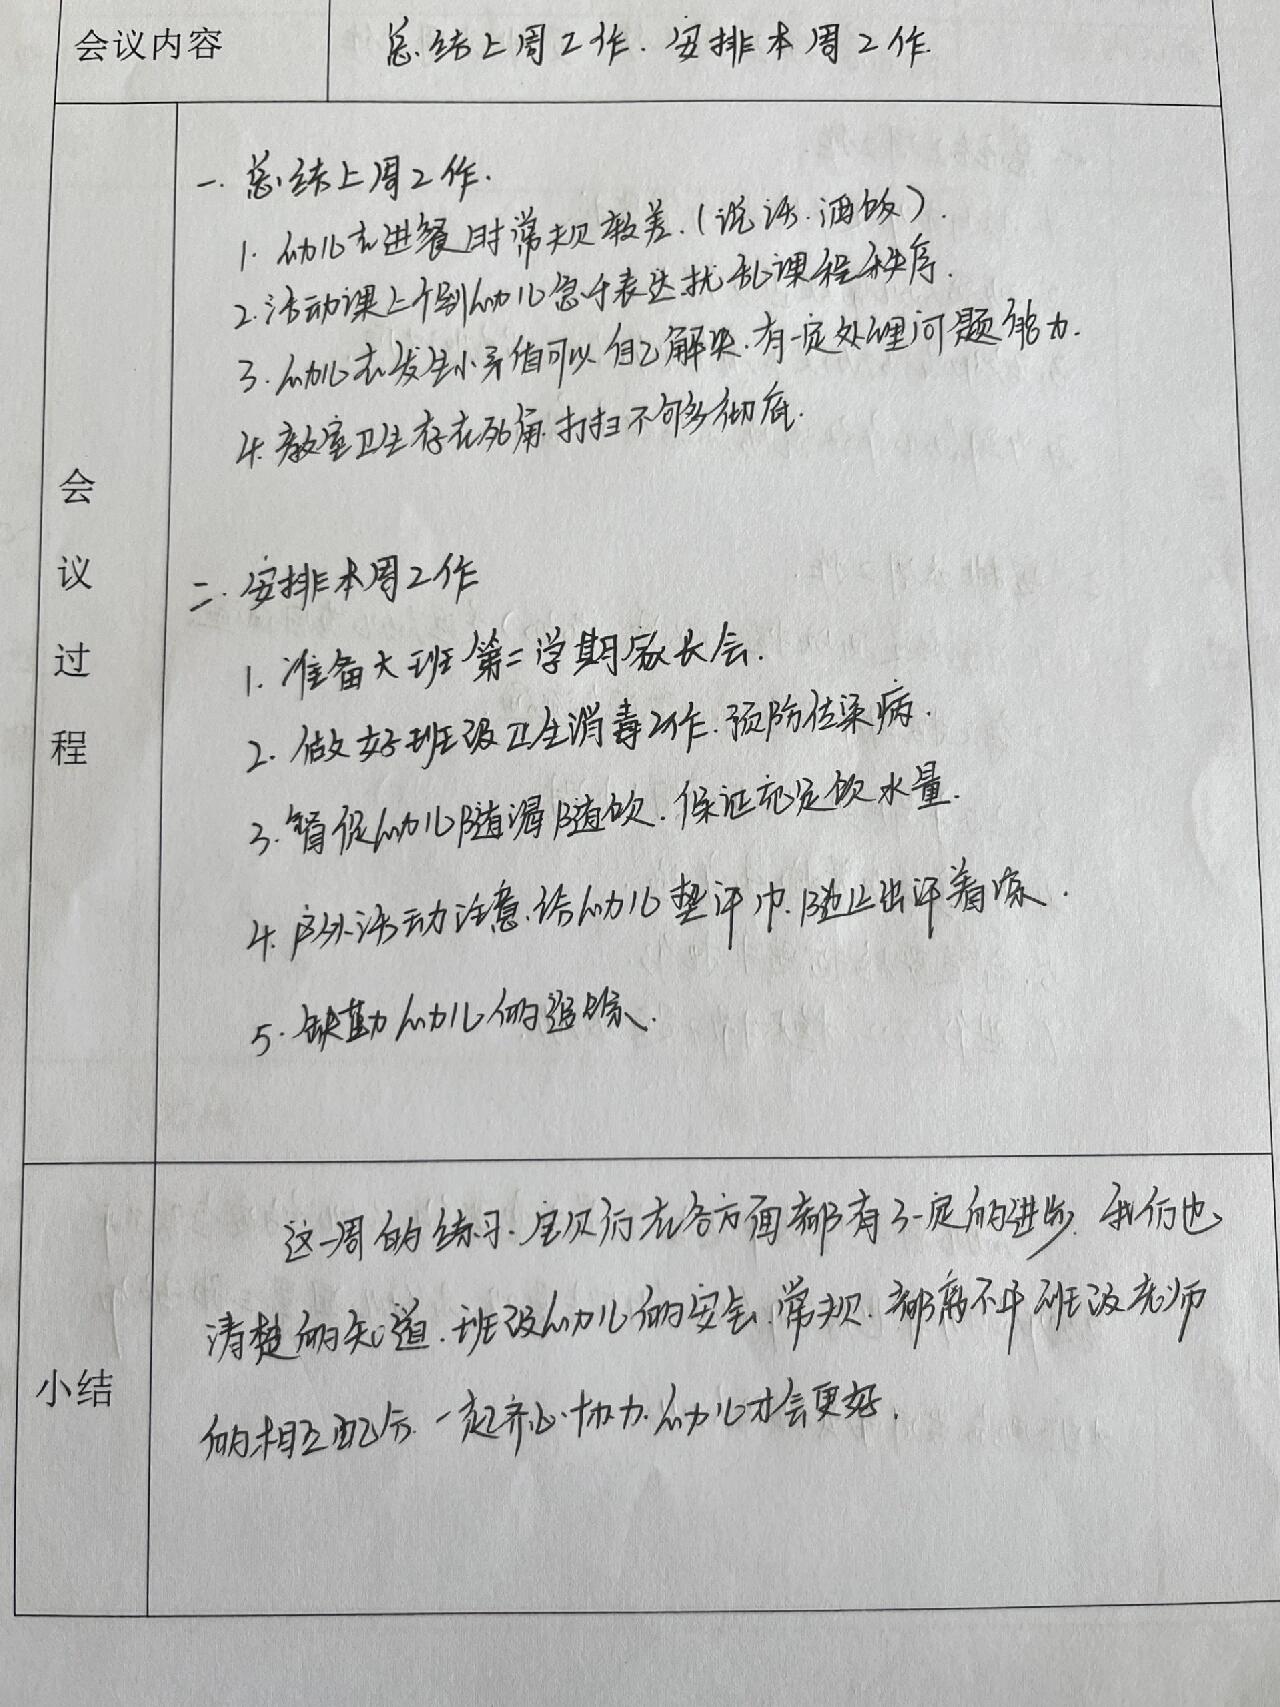 会议内容
总结上周工作.安排本周工作.
会议过程
一.总结上周工作.
1.幼儿在进餐时常规较差.(说话.洒饭).
2.活动课上个别幼儿急于表达扰乱课程秩序.
3.幼儿在发生小矛盾可以自己解决.有一定处理问题能力.
4.教室卫生存在死角.打扫不够彻底.
二.安排本周工作
1.准备大班第二学期家长会.
2.做好班级卫生消毒工作.预防传染病.
3.督促幼儿随渴随饮.保证充足饮水量.
4.户外活动注意.给幼儿垫汗巾.防止出汗着凉.
5.缺勤幼儿的追踪.
小结
这一周的练习.宝贝们在各方面都有了一定的进步.我们也
清楚的知道.班级幼儿的安全.常规.都离不开班级老师
的相互配合.一起齐心协力.幼儿才会更好.